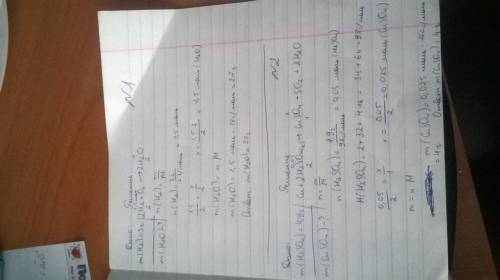 N1
Дано: Решение
m(H2)=3г 2H2+O2→2H2O
m(H2O)-? n(H2)=m/M
n(H2)=3г/2г/моль=1,5 моль
1,5/2=x/2 x=1,5·2/2=1,5 моль (H2O)
m(H2O)=n·M
m(H2O)=1,5 моль·18г/моль=27г.
Ответ: m(H2O)=27г.
N2
Дано: Решение
m(H2SO4)=4,9г Cu+2H2SO4→CuSO4+SO2+2H2O
m(CuSO4)-? n=m/M
n(H2SO4)=4,9г/98г/моль=0,05 моль (H2SO4)
M(H2SO4)=2+32+4·16=34+64=98г/моль
0,05/2=x/1 x=0,05/2=0,025 моль (CuSO4)
m=n·M
m(CuSO4)=0,025 моль·160г/моль
=4г.
Ответ: m(CuSO4)=4г.